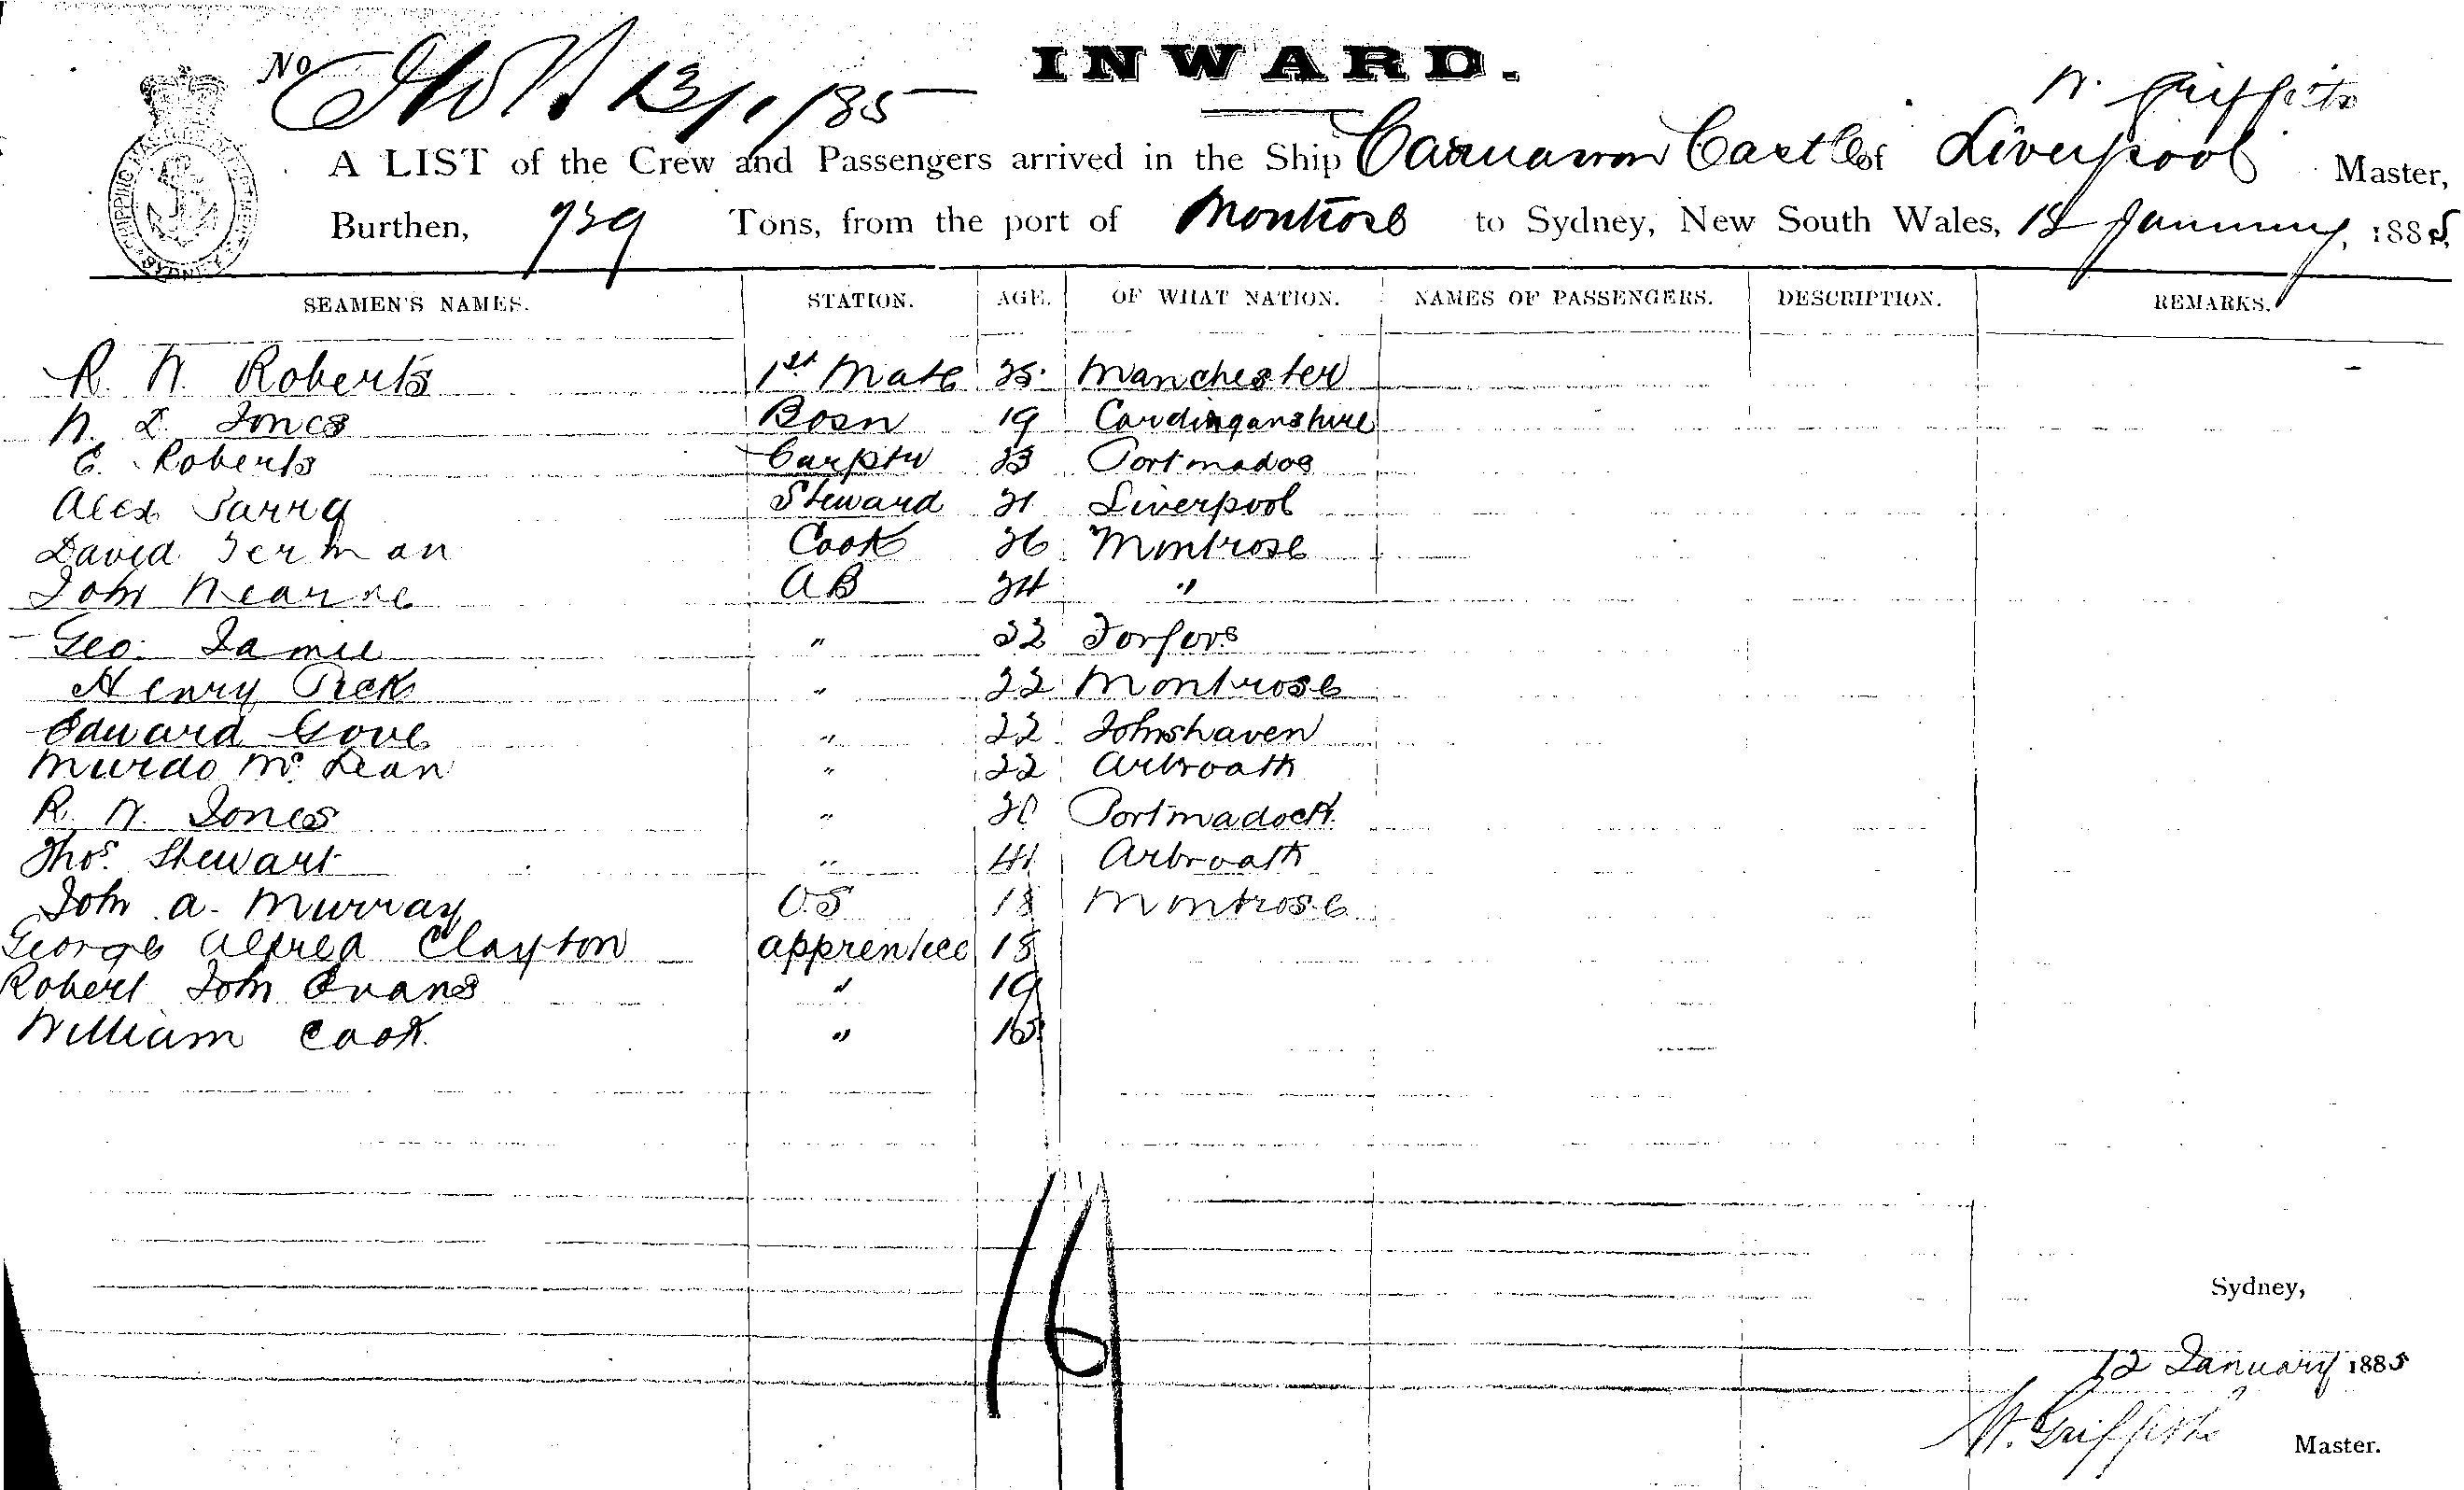 No
INWARD.
W. Griffiths
13/1/85
A LIST of the Crew and Passengers arrived in the Ship Carnarvon Castle of Liverpool Master,
Burthen, 739 Tons, from the port of Montrose to Sydney, New South Wales, 12 January, 1885
SHIPPING MASTER'S SYDNEY
SEAMEN'S NAMES. STATION. AGE. OF WHAT NATION. NAMES OF PASSENGERS. DESCRIPTION. REMARKS.
R. W. Roberts 1st Mate 25 Manchester
Jones Bosn 19 Cardinganshire
E. Roberts Carptr 23 Portmadoc
Alex Parry Steward 21 Liverpool
David German Cook 26 Montrose
John Nearne AB 24 "
Geo. Jamie " 22 Forfors
Henry Peek " 22 Montrose
Edward Gove " 22 Johnshaven
Murdo Mc Lean " 22 Arbroath
R. W. Jones " Portmadock
Thos. Stewart " 41 Arbroath
John A. Murray O.S 18 Montrose
George Alfred Clayton apprentice 18
Robert John Evans " 19
William Cook " 15
16
Sydney,
12 January 1885
W. Griffiths Master.